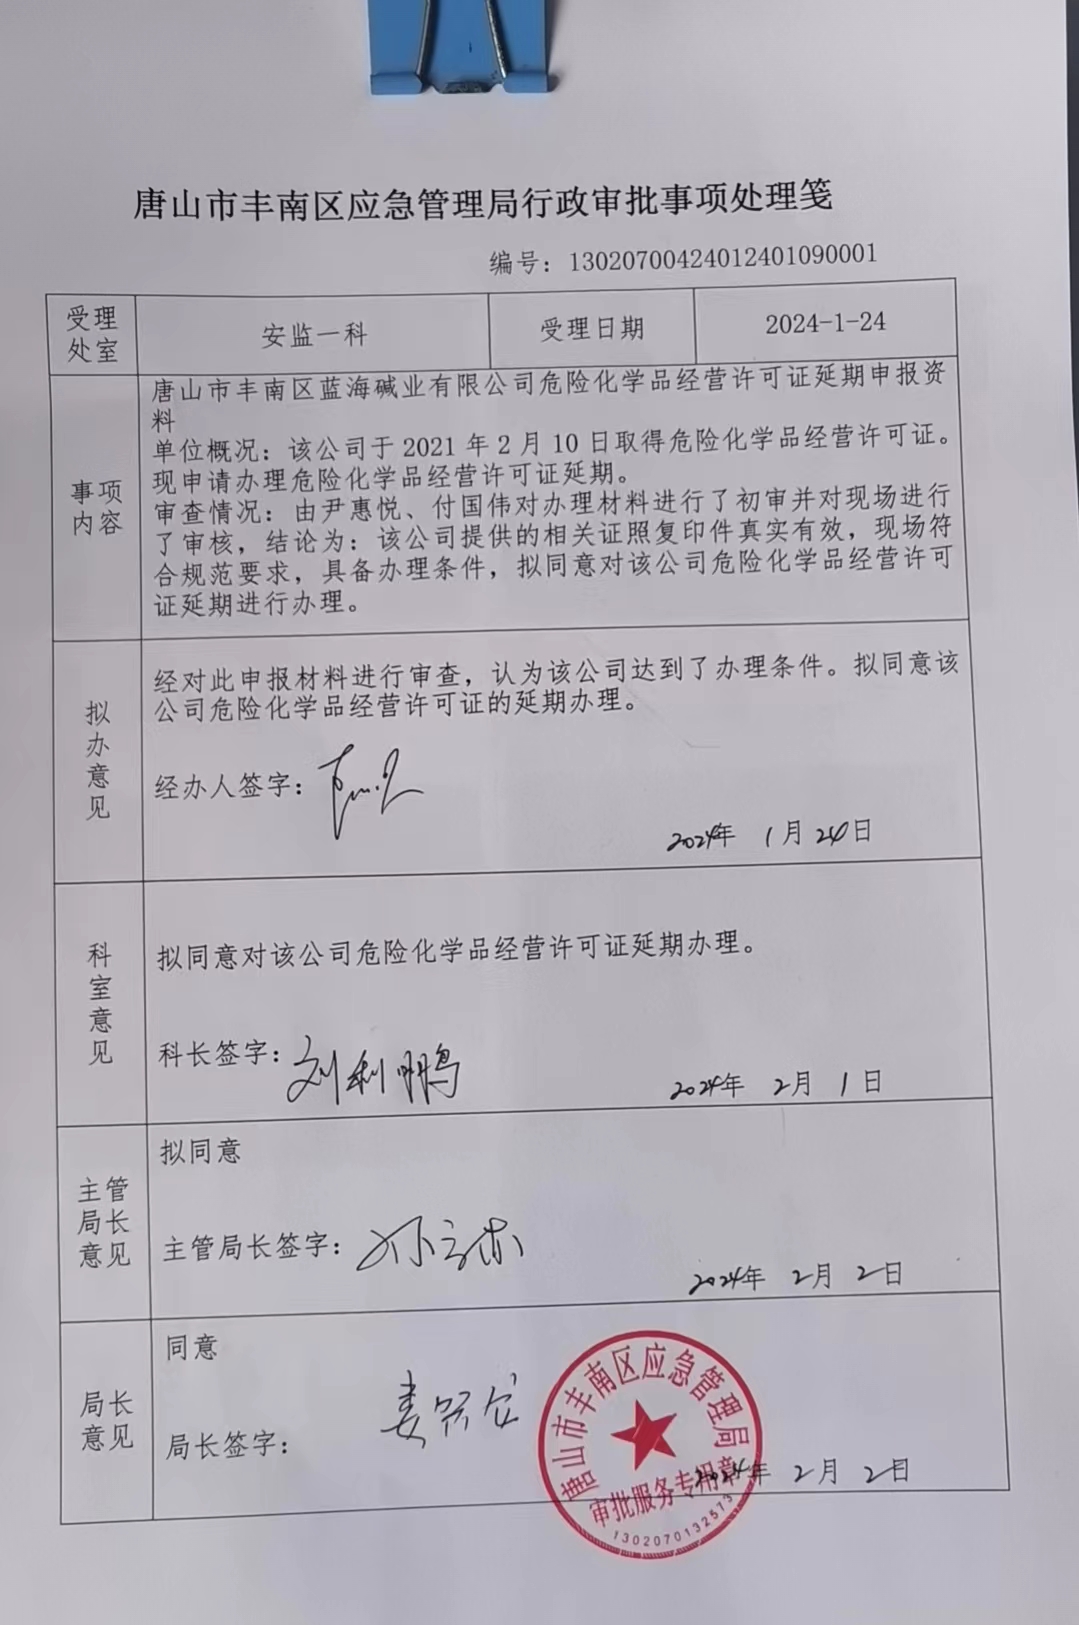 唐山市丰南区应急管理局行政审批事项处理笺
编号：13020700424012401090001
受理
处室
安监一科
受理日期
2024-1-24
事项
内容
唐山市丰南区蓝海碱业有限公司危险化学品经营许可证延期申报资
料
单位概况：该公司于 2021 年 2 月 10 日取得危险化学品经营许可证。
现申请办理危险化学品经营许可证延期。
审查情况：由尹惠悦、付国伟对办理材料进行了初审并对现场进行
了审核，结论为：该公司提供的相关证照复印件真实有效，现场符
合规范要求，具备办理条件，拟同意对该公司危险化学品经营许可
证延期进行办理。
拟
办
意
见
经对此申报材料进行审查，认为该公司达到了办理条件。拟同意该
公司危险化学品经营许可证的延期办理。
经办人签字：
2024年 1月 24日
科
室
意
见
拟同意对该公司危险化学品经营许可证延期办理。
科长签字：刘利鹏
2024年 2月 1日
主管
局长
意见
拟同意
主管局长签字：
2024年 2月 2日
局长
意见
同意
局长签字：
2024年 2月 2日
唐山市丰南区应急管理局
审批服务专用章
1302070132573